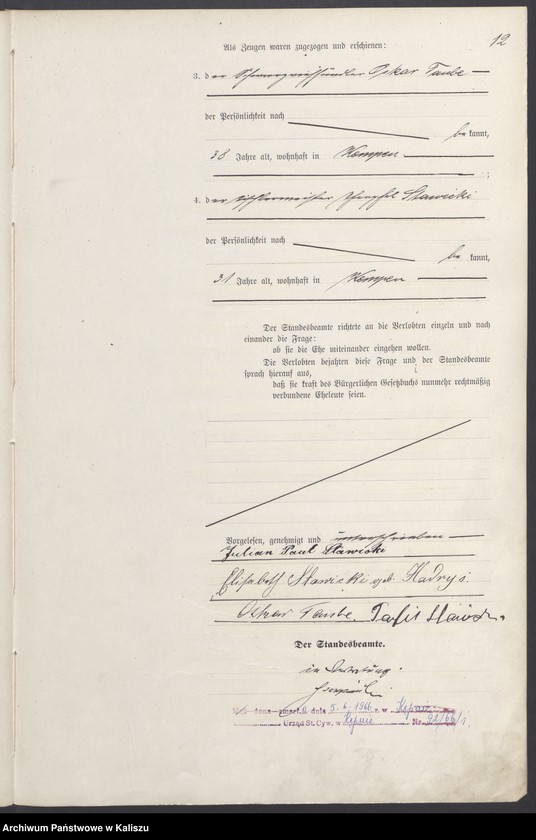 12
Als Zeugen waren zugezogen und erschienen:
3. der Oskar Taube
der Persönlichkeit nach
bekannt,
38 Jahre alt, wohnhaft in Kempen
;
4. der Tischlermeister Stawicki
der Persönlichkeit nach
bekannt,
31 Jahre alt, wohnhaft in Kempen
Der Standesbeamte richtete an die Verlobten einzeln und nach
einander die Frage:
ob sie die Ehe miteinander eingehen wollen.
Die Verlobten bejahten diese Frage und der Standesbeamte
sprach hierauf aus,
daß sie kraft des Bürgerlichen Gesetzbuchs nunmehr rechtmäßig
verbundene Eheleute seien.
Vorgelesen, genehmigt und unterschrieben
Julian Paul Stawicki
Elisabeth Stawicki geb. Kadrys.
Oskar Taube.
Der Standesbeamte.
in Vertretung.
dnia 5.6.1966 r. w Kępnie
Urząd St. Cyw. w Kępnie Nr. 92/66/
Archiwum Państwowe w Kaliszu